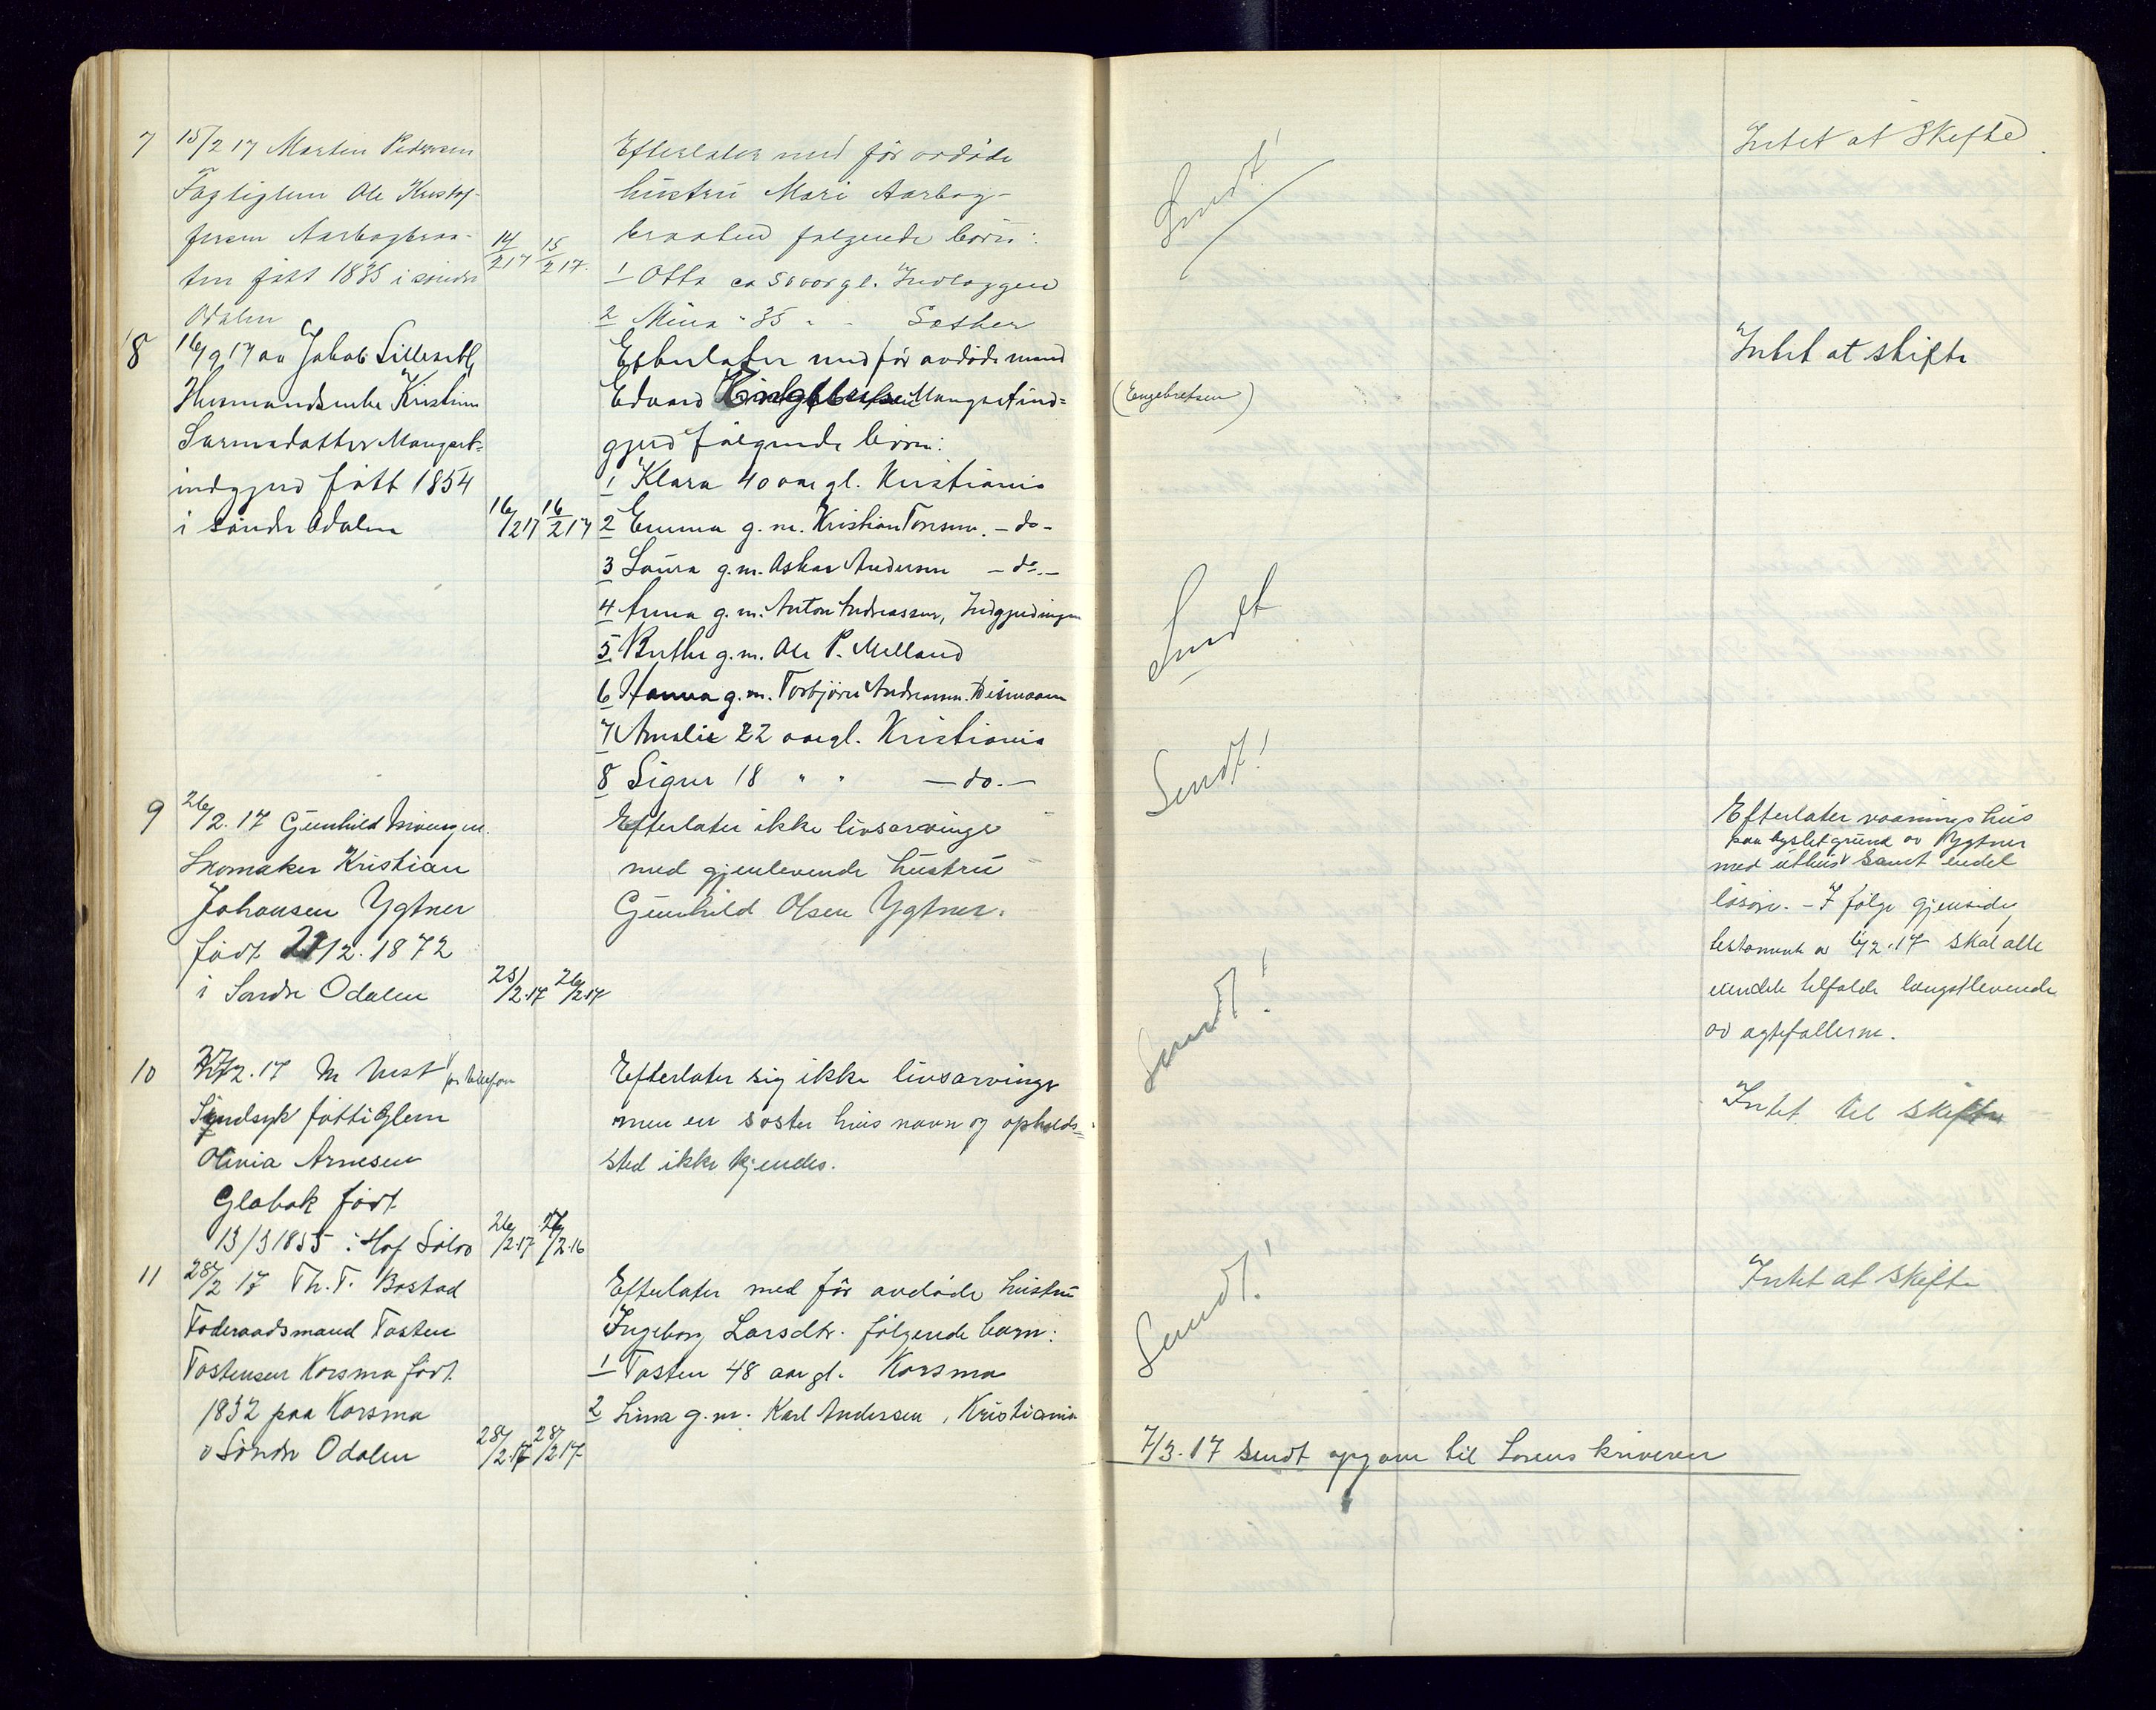 7
15/2 17 Martin Pedersen
Fattiglem Ole Kristof-
fersen Aarbogbraa-
ten født 1835 i søndre
Odalen
14/2 17
15/2 17.
Efterlater med før avdøde
hustru Mari Aarbog-
braaten følgende børn:
1 Otto ca 50 aar gl.
2 Mina " 35 " "
Sendt!
Intet at Skifte
8
16/2 17 av Jakob Lilleseth
Husmandsenke Kristine
Larsdatter
født 1854
i søndre Odalen
16/2 17
16/2 17
Efterlater med før avdøde mand
Edvard Mangset ind-
gjerd følgende børn:
1 Klara 40 aar gl. Kristiania
2 Emma g. m. Kristian Toresen. - do -
3 Laura g. m. Oskar Andersen - do. -
4 Anna g. m. Anton Andreassen, Indgjerdingen
5. Berthe g. m. Ole P. Melland
6 Hanna g. m. Torbjørn Andreassen. Disenaaen
7 Amalie 22 aar gl. Kristiania
8 Signe 18 " " - do. -
(Engebretsen)
Sendt
Intet at skifte
9
26/2. 17 Gunhild
Skomaker Kristian
Johansen Ygtner
født 21/12. 1872
i Søndre Odalen
25/2. 17
26/2. 17
Efterlater ikke livsarvinge
med gjenlevende hustru
Gunhild Olsen Ygtner.
Sendt!
Efterlater vaaningshus
paa bygslet grund av Ygtner
med uthus samt endel
løsøre. - I følge gjensidig
testament av 6/2. 17 skal alle
eiendele tilfalde længstlevende
av ægtefællerne.
10
27/2. 17 M Vest pr telefon
Sindsyk fattiglem
Olivia Arnesen
Glabak født
13/3 1855 i Hof Solør
26/2. 17
27/2. 16
Efterlater sig ikke livsarvinge
men en søster hvis navn og opholds-
sted ikke kjendes.
Sendt!
Intet til skifte
11
28/2 17 Th. T. Bostad
Føderaadsmand Tosten
Tostensen Korsmo født
1832 paa Korsmo
i Søndre Odalen
28/2. 17
28/2 17
Efterlater med før avdøde hustru
Ingeborg Larsdtr. følgende barn:
1 Tosten 48 aar gl. Korsmo
2 Lina g. m. Karl Andersen, Kristiania
Sendt!
Intet at skifte
7/3. 17 sendt opgave til Sorenskriveren